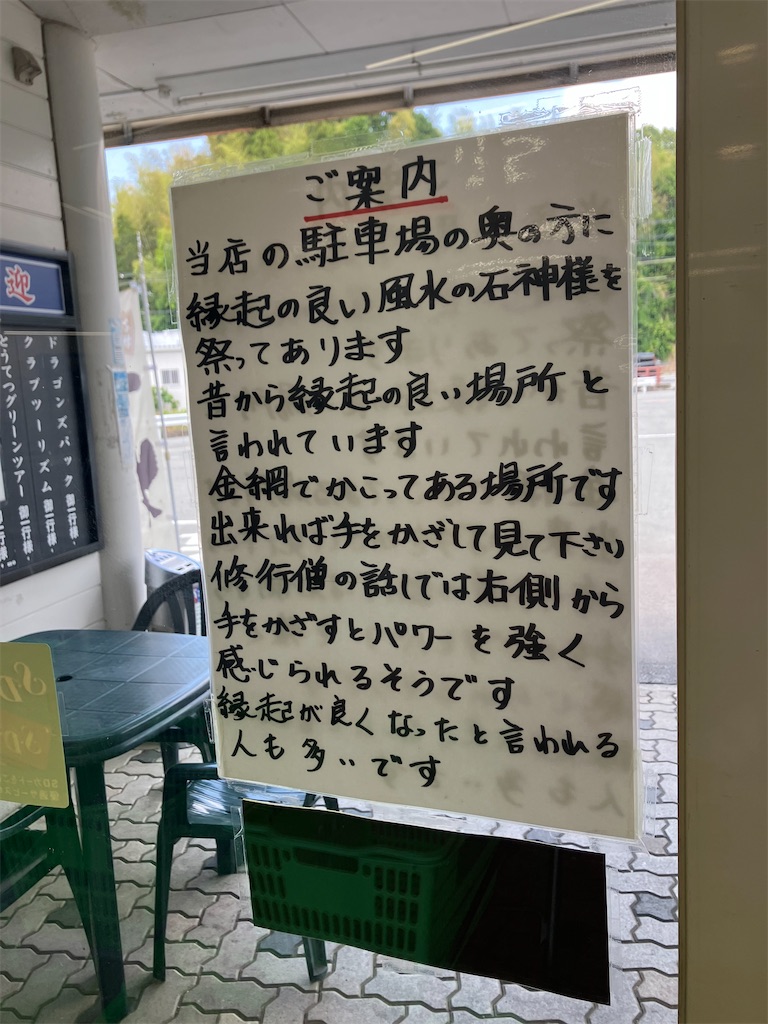 ご案内
当店の駐車場の奥の方に
縁起の良い風水の石神様を
祭ってあります
昔から縁起の良い場所と
言われています
金網でかこってある場所です
出来れば手をかざして見て下さい
修行僧の話しでは右側から
手をかざすとパワーを強く
感じられるそうです
縁起が良くなったと言われる
人も多いです
迎
ドラゴンズパック 御一行様
クラブツーリズム 御一行様
どうてつグリーンツアー 御一行様